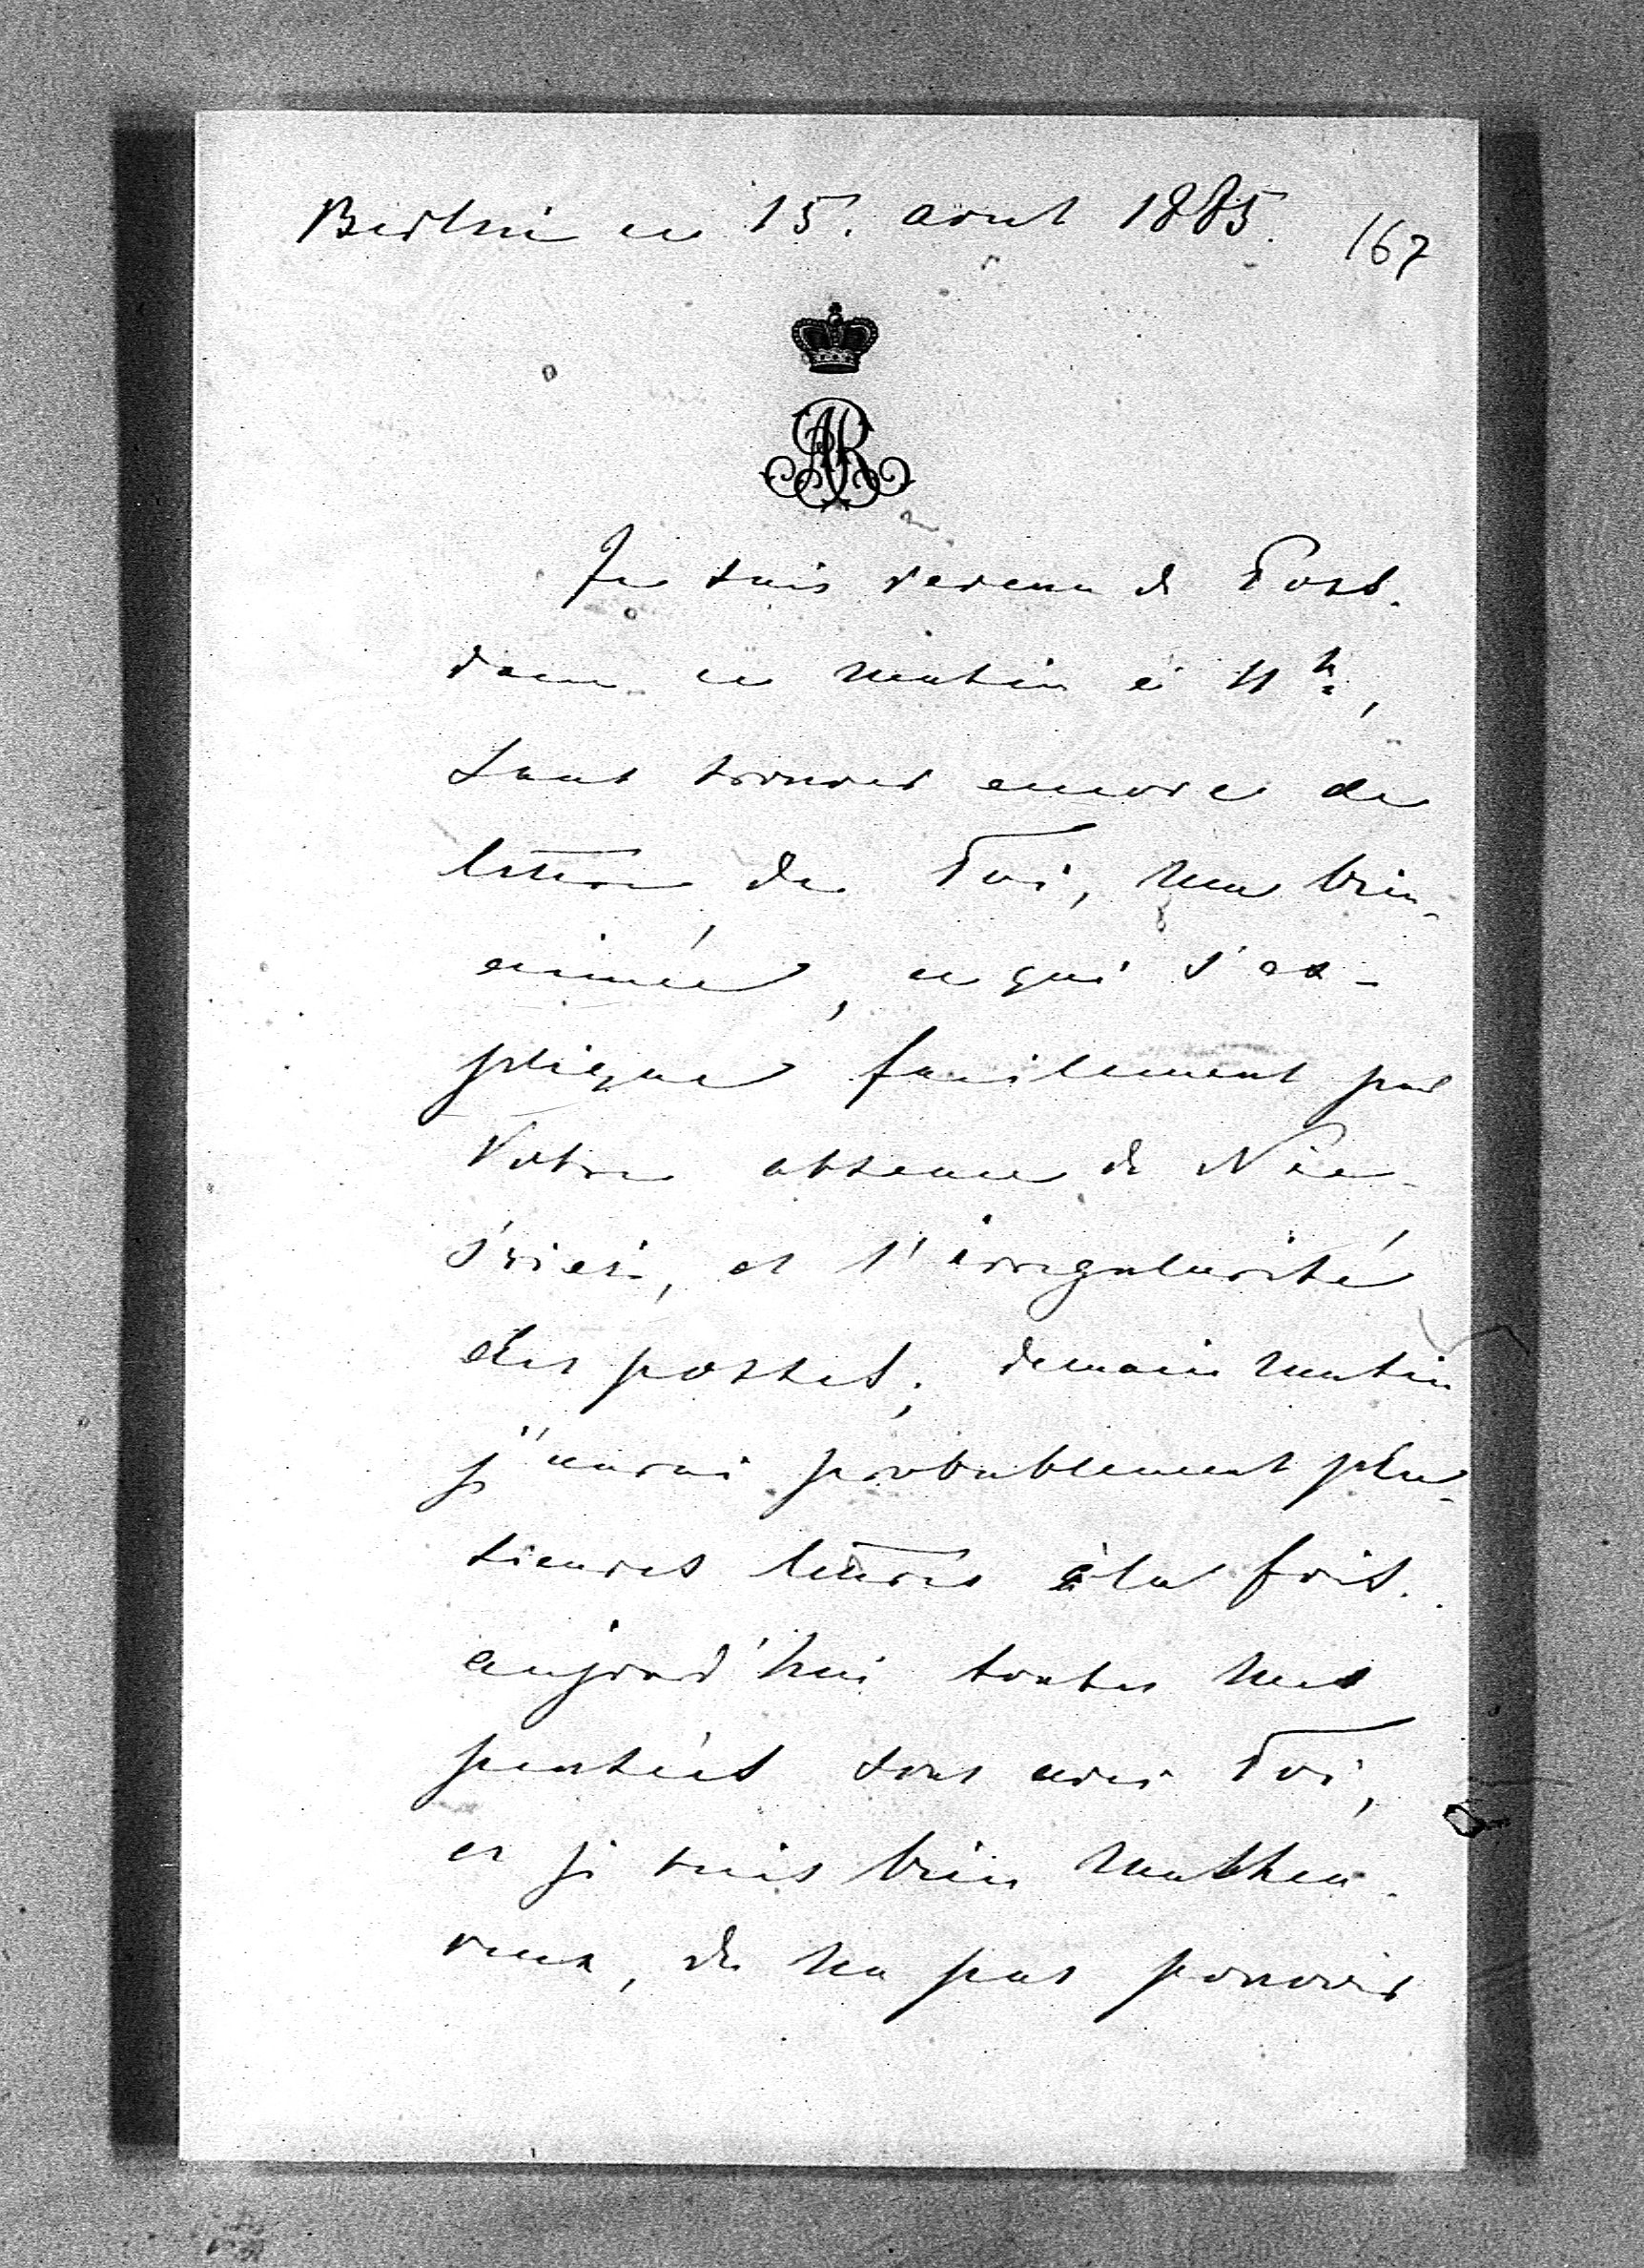 Berlin ce 15. aout 1885. 167
AR
Je suis revenu de Pots-
dam ce matin à 11 h,
sans trouver encore de
lettre de Toi, ma bien-
aimée, ce qui s'ex-
plique facilement par
Votre absence de Nie-
świeź, et l'irregularité
des postes; demain matin
j'aurai probablement plu-
sieures lettres à la fois.
aujourd'hui toutes mes
pensées sont avec Toi,
et je suis bien malheu-
reux, de ne pas pouvoir